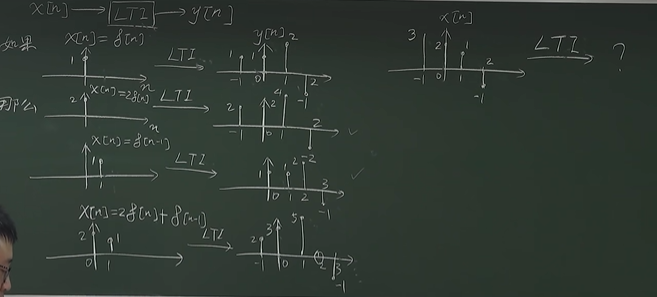 x[n] → LTI → y[n]
如果 x[n]=δ[n] LTI y[n]
1 n 1 1 2 -1 0 1 2 -1
那么 x[n]=2δ[n] LTI
2 n 2 2 4 -1 0 1 2
x[n]=δ[n-1] LTI
1 1 1 1 2 -2 0 1 2 3 -1
x[n]=2δ[n]+δ[n-1] LTI
2 1 0 1 2 3 5 -1 0 1 2 3 -1
x[n] LTI ?
3 2 1 -1 0 1 2 -1